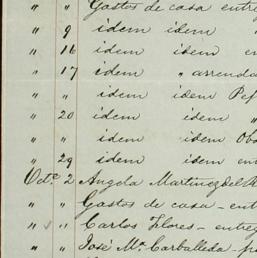 " " Gastos de casa entre
" 9 idem idem "
" 16 idem idem en
" 17 idem " arrenda
" " idem idem Pef
" 20 idem idem "
" " idem idem Oba
" 29 idem idem en
Octe. 2 Angela Martinez del R
" " Gastos de casa - ent
" 5 " Carlos Flores - entreg
" " José Ma. Carballeda - p